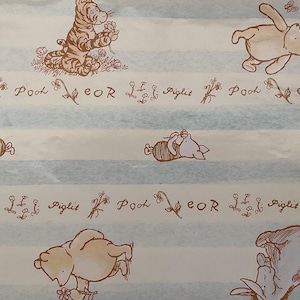 Pooh eOR Piglit Pooh eOR
Piglit Pooh eOR Piglit